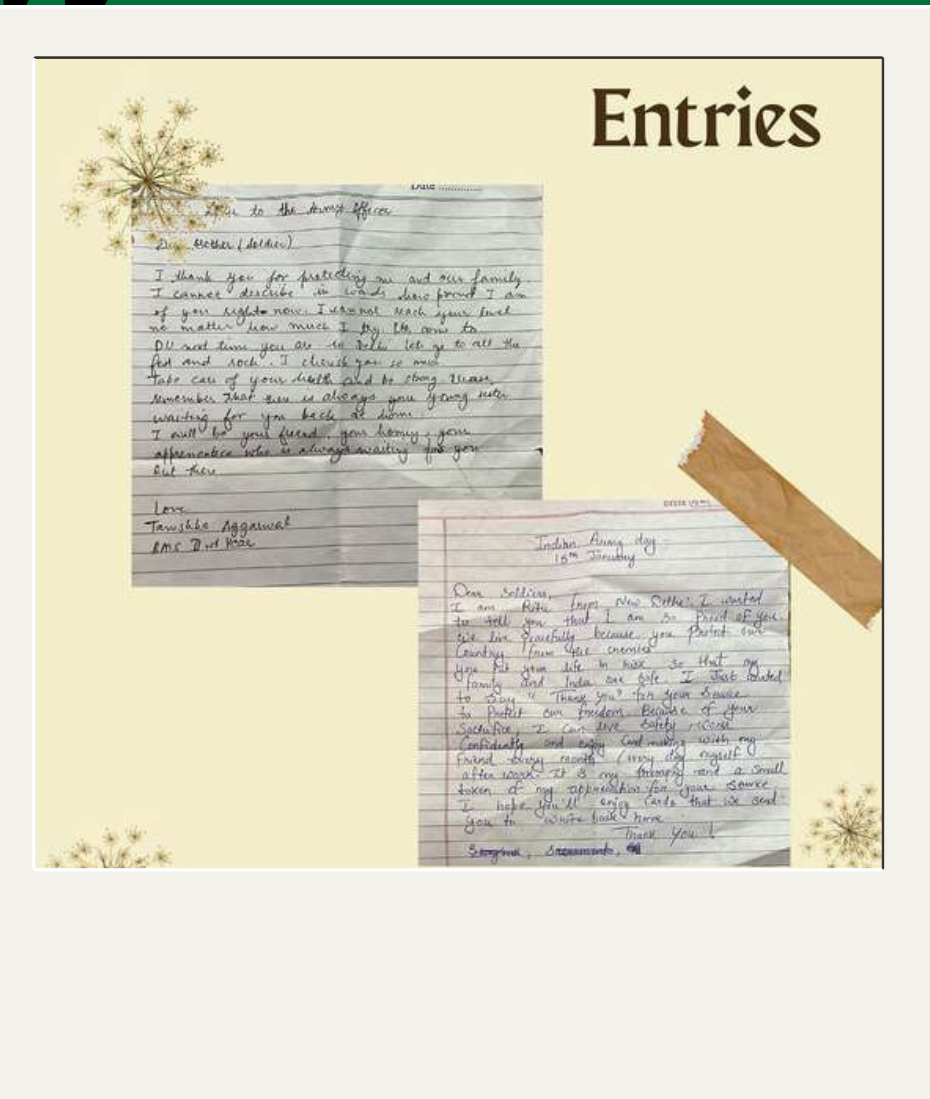 Entries
Date ..............
to the Army Officer
Dear Mother (Soldier)
I thank you for protecting me and our family.
I cannot describe in words how proud I am
of you right now. I cannot reach your level
no matter how much I try. come to
DU next time you are in Delhi let's go to all the
fest and rock. I cherish you so much
Take care of your health and be strong
remember that there is always your young sister
waiting for you back at home.
I will be your friend, your homey, your
apprenentice who is always waiting for you
out there
Love
Tanishka Aggarwal
BMS Year
Indian Army day
15th January
Dear Soldiers,
I am Ritu from New Delhi. I wanted
to tell you that I am so Proud of you.
We live peacefully because you Protect our
Country from the enemies
You put your life in risk so that my
family and India are safe. I Just wanted
to Say " Thank you" for your Service
to Protect our freedom. Because of your
Sacrifice, I Can live Safely,
Confidently and enjoy Card making with my
friend every month / every day myself
after work. It is my and a Small
token of my appreciation for your Service
I hope you'll enjoy Cards that we send
you to write back home
Thank You !